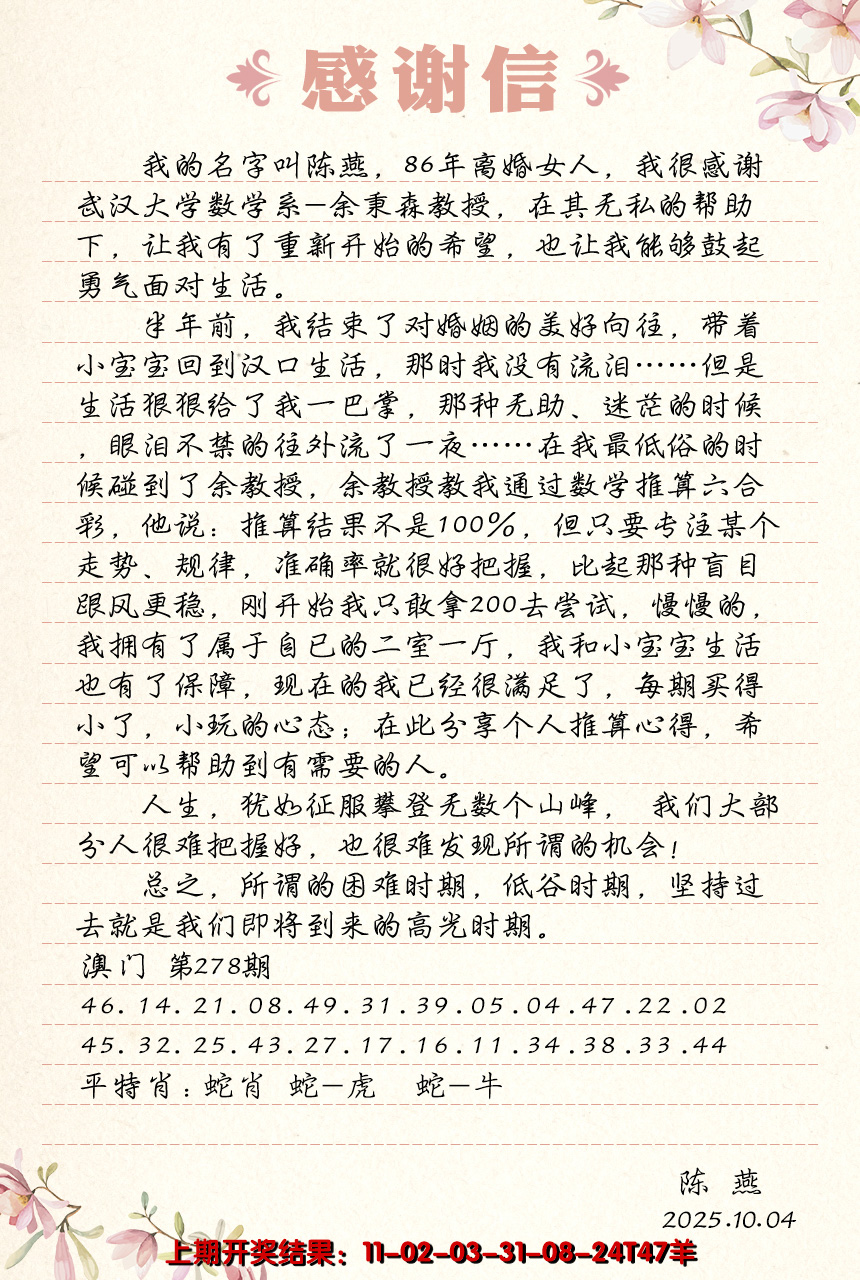 感谢信
我的名字叫陈燕，86年离婚女人，我很感谢
武汉大学数学系—余秉森教授，在其无私的帮助
下，让我有了重新开始的希望，也让我能够鼓起
勇气面对生活。
半年前，我结束了对婚姻的美好向往，带着
小宝宝回到汉口生活，那时我没有流泪……但是
生活狠狠给了我一巴掌，那种无助、迷茫的时候
，眼泪不禁的往外流了一夜……在我最低俗的时
候碰到了余教授，余教授教我通过数学推算六合
彩，他说：推算结果不是100%，但只要专注某个
走势、规律，准确率就很好把握，比起那种盲目
跟风更稳，刚开始我只敢拿200去尝试，慢慢的，
我拥有了属于自己的二室一厅，我和小宝宝生活
也有了保障，现在的我已经很满足了，每期买得
小了，小玩的心态；在此分享个人推算心得，希
望可以帮助到有需要的人。
人生，犹如征服攀登无数个山峰， 我们大部
分人很难把握好，也很难发现所谓的机会！
总之，所谓的困难时期，低谷时期，坚持过
去就是我们即将到来的高光时期。
澳门 第278期
46.14.21.08.49.31.39.05.04.47.22.02
45.32.25.43.27.17.16.11.34.38.33.44
平特肖：蛇肖 蛇—虎 蛇—牛
陈 燕
2025.10.04
上期开奖结果：11-02-03-31-08-24T47羊